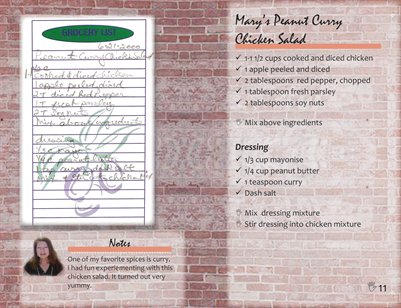 GROCERY LIST
6-21-2000
Peanut Curry Chicken Salad
Cooked & diced chicken
1 apple peeled, diced
2T diced Red Pepper
1T fresh parsley
2T Soy nuts
Mix above ingredients
dressing
Notes
One of my favorite spices is curry.
I had fun experiementing with this
chicken salad. It turned out very
yummy.
Mary's Peanut Curry
Chicken Salad
✓ 1-1 1/2 cups cooked and diced chicken
✓ 1 apple peeled and diced
✓ 2 tablespoons red pepper, chopped
✓ 1 tablespoon fresh parsley
✓ 2 tablespoons soy nuts
Mix above ingredients
Dressing
✓ 1/3 cup mayonise
✓ 1/4 cup peanut butter
✓ 1 teaspoon curry
✓ Dash salt
Mix dressing mixture
Stir dressing into chicken mixture
11